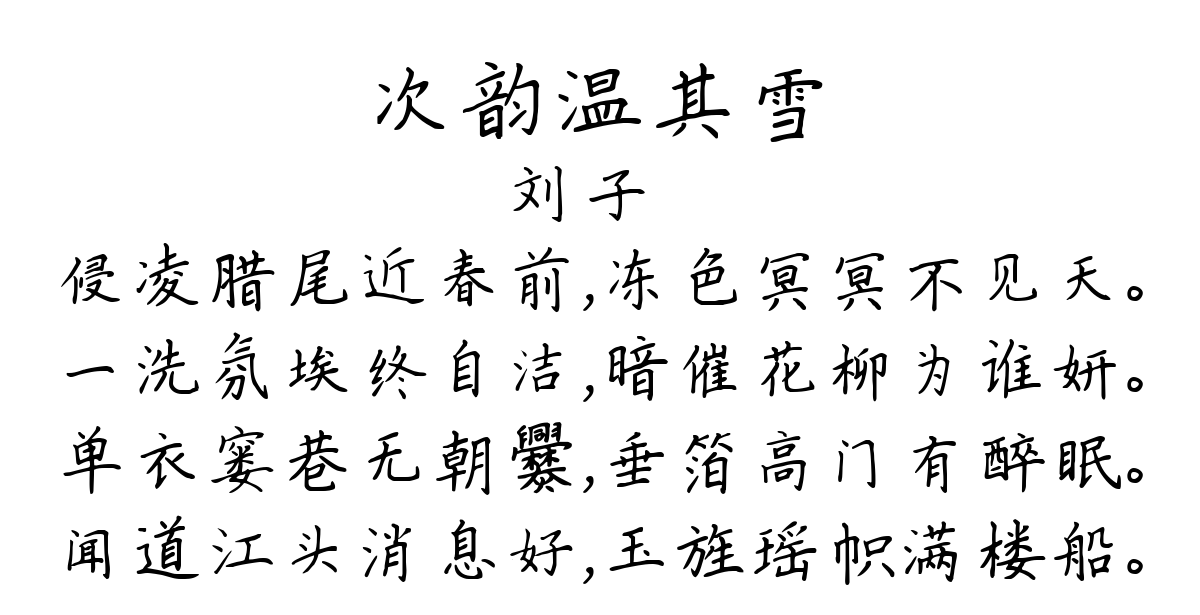 次韵温其雪
刘子
侵凌腊尾近春前,冻色冥冥不见天。
一洗氛埃终自洁,暗催花柳为谁妍。
单衣窭巷无朝爨,垂箔高门有醉眠。
闻道江头消息好,玉旌瑶帜满楼船。